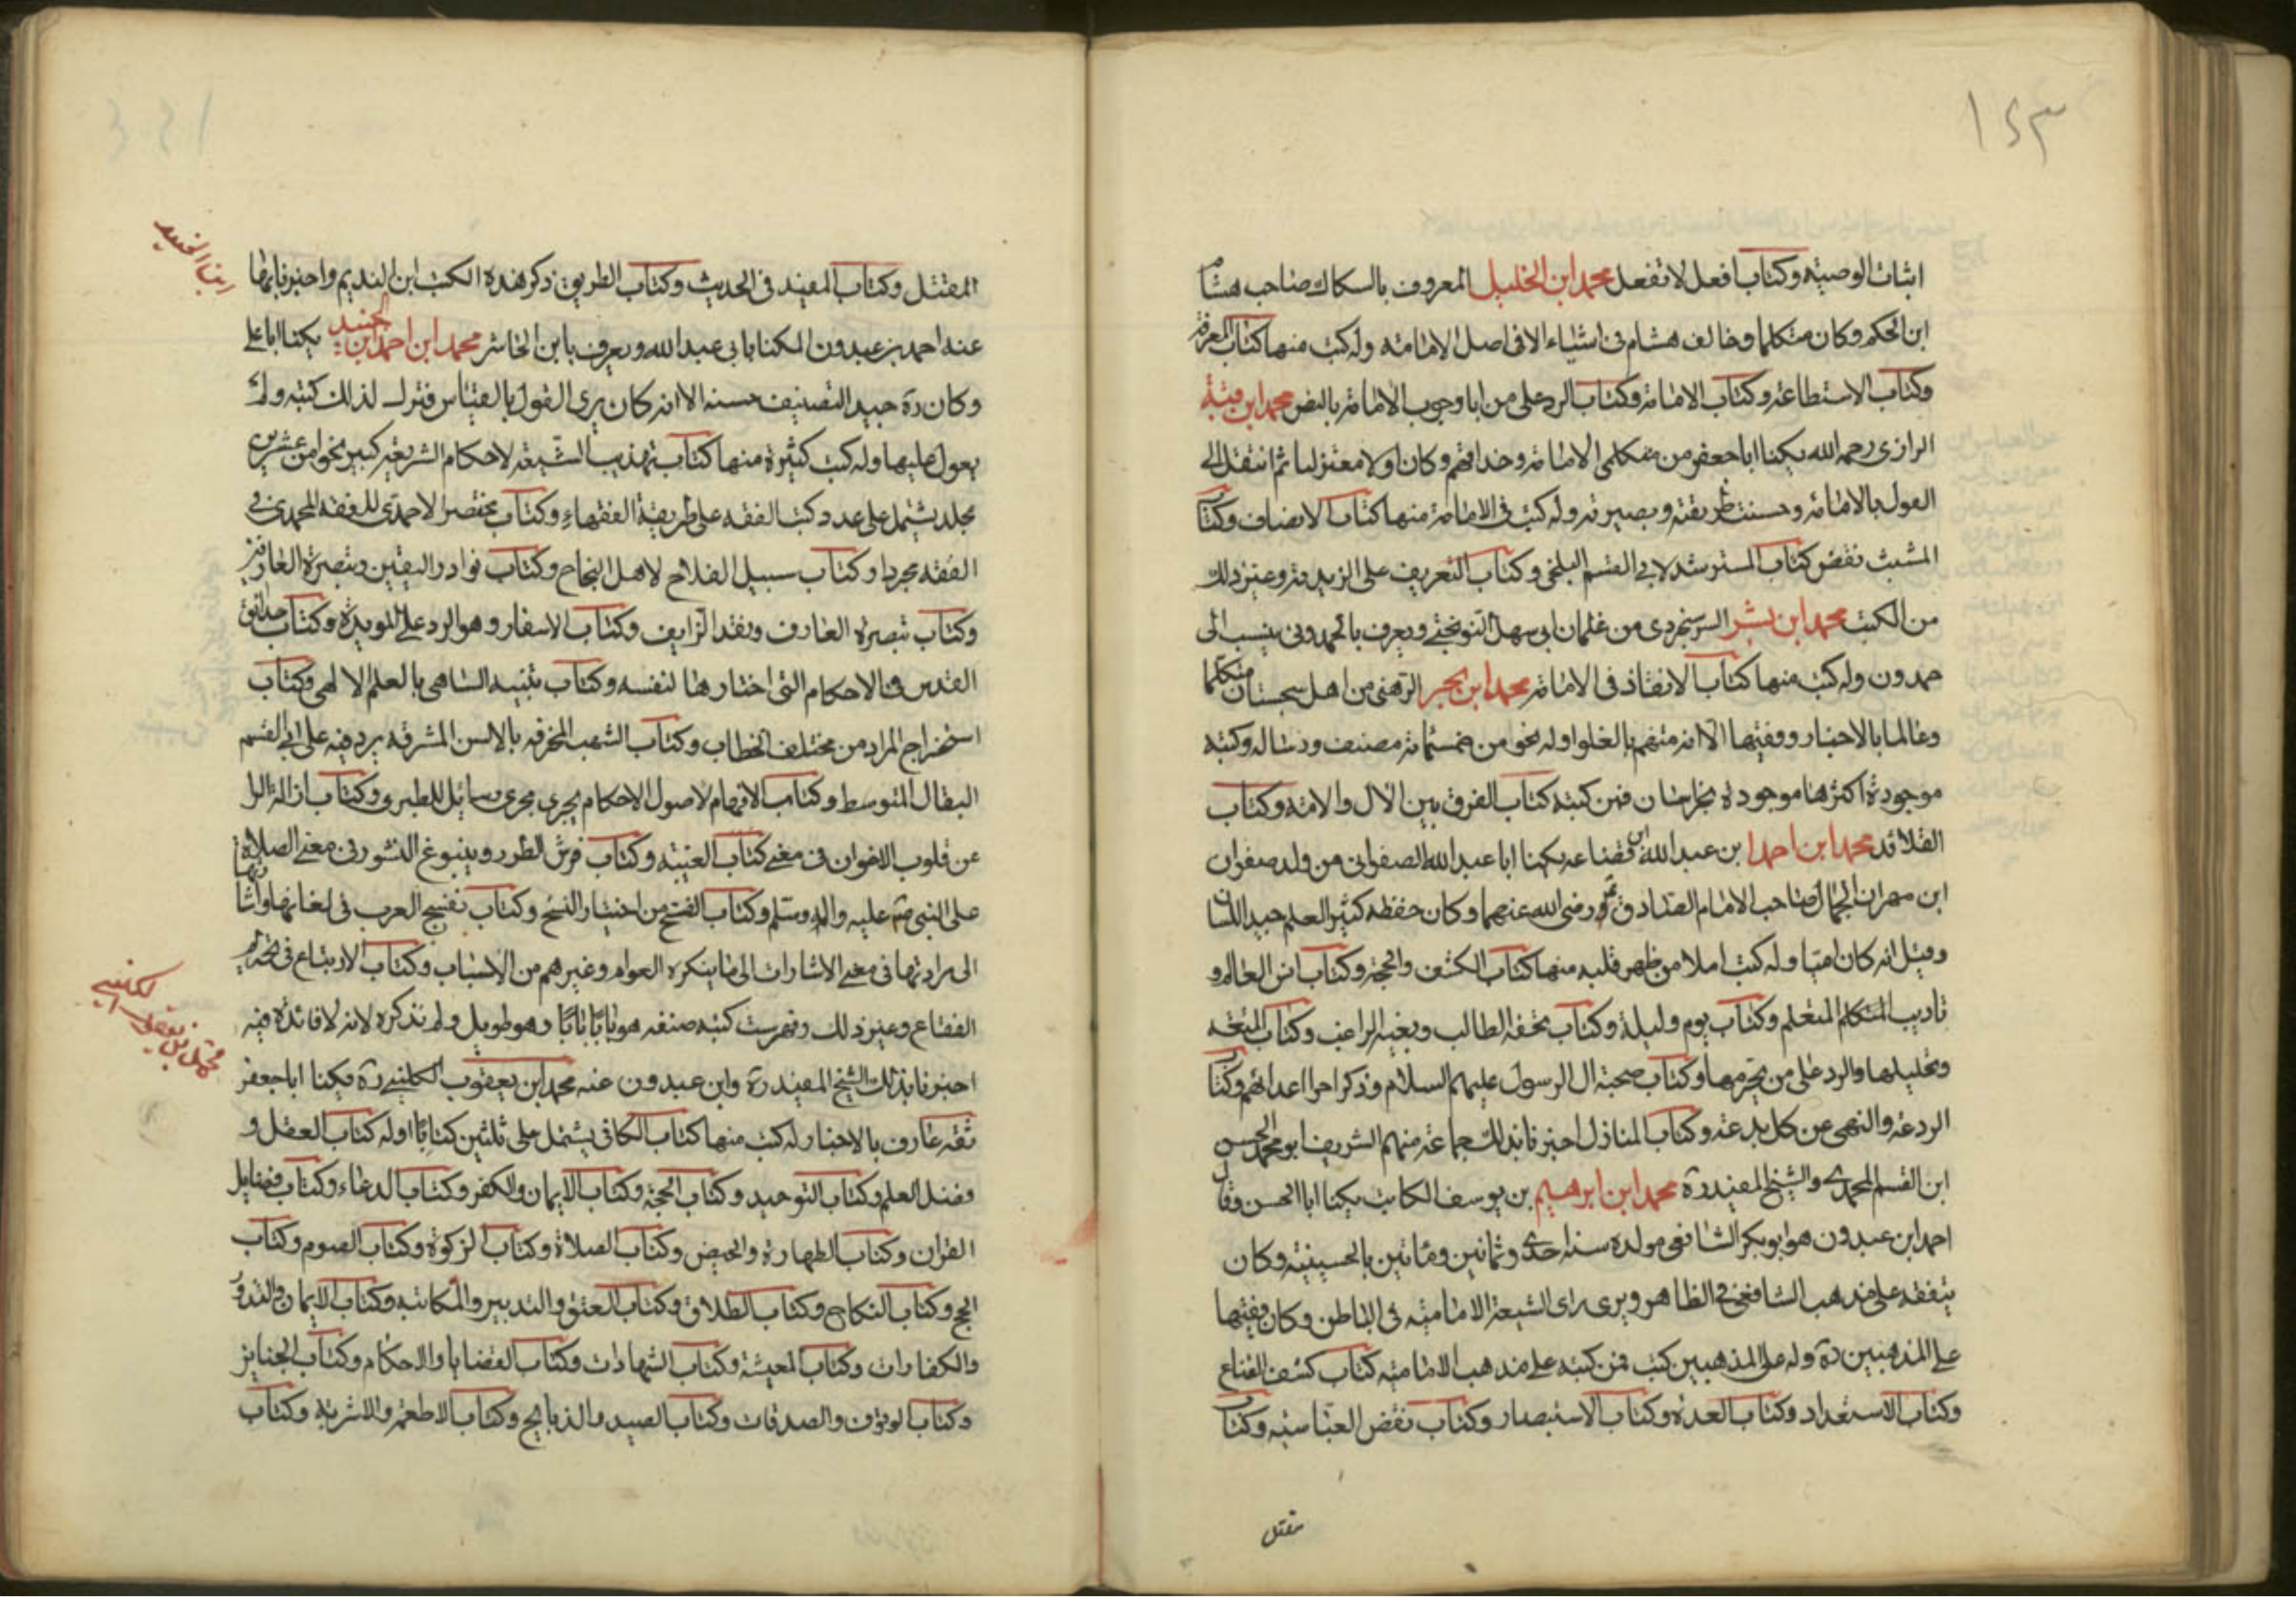 ١٤٣
اثبات الوصيته وكتاب افعل لا تفعل محمد ابن الخليل المعروف بالسكاك صاحب هشام
ابن الحكم وكان متكلما وخالف هشام فى اشياء الا فى اصل الامامته وله كتب منها كتاب المعرفة
وكتاب الاستطاعته وكتاب الامامة وكتاب الرد على من ابا وجوب الامامة بالنص محمد ابن قبة
الرازى رحمه الله يكنا ابا جعفر من متكلمى الامامة وحذاقهم وكان اولا معتزليا ثم انتقل الى
القول بالامامة وحسنت طريقته وبصيرته وله كتب فى الامامة منها كتاب الانصاف وكتاب
المثبت نقض كتاب المسترشد لابى القسم البلخى وكتاب التعريف على الزيدية وغير ذلك
من الكتب محمد ابن بشر السوسنجردى من غلمان ابى سهل النوبختى ويعرف بالحمدونى ينسب الى
حمدون وله كتب منها كتاب الانقاذ فى الامامة محمد ابن بحر الرهنى من اهل سجستان متكلما
وعالما بالاخبار وفقيها الا انه متهم بالغلو وله نحو من خمسمائة مصنف ورساله وكتبه
موجودة اكثرها موجوده بخراسان فمن كتبه كتاب الفرق بين الال والامته وكتاب
القلائد محمد ابن احمد ابن عبد الله ابن قضاعه يكنا ابا عبد الله الصفوانى من ولد صفوان
ابن مهران الجمال صاحب الامام الصادق رضى الله عنهما وكان حفظه كثير العلم جيد اللسان
وقيل انه كان اميا وله كتب املا من ظهر قلبه منها كتاب الكشف والحجة وكتاب انس العالم و
تاديب المتكلم المتعلم وكتاب يوم وليلة وكتاب تحفه الطالب وبغيه الراغب وكتاب المتعه
وتحليلها والرد على من يحرمها وكتاب صحبة ال الرسول عليهم السلام وذكر احوال اعدائهم وكتاب
الردعة والنهى عن كل بدعة وكتاب المنازل اخبرنا بذلك جماعة منهم الشريف ابو محمد الحسن
ابن القسم المحمدى والشيخ المفيد ره محمد ابن ابرهيم بن يوسف الكاتب يكنا ابا الحسن وقال
احمد ابن عبدون هو ابو بكر الشافعى مولده سنه احدى وثمانين ومأتين بالحسينية وكان
يتفقه على مذهب الشافعى فى الظاهر ويرى راى الشيعة الاماميه فى الباطن وكان فقيها
على المذهبين ره وله على المذهبين كتب فمن كتبه على مذهب الاماميه كتاب كشف القناع
وكتاب الاستعداد وكتاب العدة وكتاب الاستبصار وكتاب نقض العباسيه وكتاب
مقتل
ابن الجنيد
المقتل وكتاب المفيد فى الحديث وكتاب الطريق ذكر هذه الكتب ابن النديم واخبرنا بها
عنه احمد بن عبدون المكنا بابى عبد الله ويعرف بابن الحاشر محمد ابن احمد ابن الجنيد يكنا ابا على
وكان ره جيد التصنيف حسنه الا انه كان يرى القول بالقياس فترك لذلك كتبه ولم
يعول عليها وله كتب كثيرة منها كتاب تهذيب الشيعة لاحكام الشريعة كبير نحوا من عشرين
مجلد يشتمل على عدد كتب الفقه على طريقة الفقهاء وكتاب مختصر الاحمدى للفقه المحمدى فى
الفقه مجردا وكتاب سبيل الفلاح لاهل النجاح وكتاب نوادر اليقين وتبصرة العارفين
وكتاب تبصرة العارف ونقد الزايف وكتاب الاسفار وهو الرد على المويدة وكتاب حدائق
القدس فى الاحكام التى اختارها لنفسه وكتاب تنبيه الساهى بالعلم الالهى وكتاب
استخراج المراد من مختلف الخطاب وكتاب الشهب المحرقه بالالسن المشرقه يرد فيه على ابى القسم
البقال المتوسط وكتاب الافهام لاصول الاحكام يجرى مجرى رسائل للطبرى وكتاب ازالة الران
عن قلوب الاخوان فى معنى كتاب الغيبته وكتاب فرش الطور وينبوع النشور فى معنى الصلاة
على النبى صم عليه واله وسلم وكتاب الفتح من اختيار النسخ وكتاب تفسح العرب فى لغاتها واشاراتها
الى مرادتها فى معنى الاشارات الى ما ينكره العوام وغيرهم من الاسباب وكتاب الارتباع فى تحريم
الفقاع وغير ذلك وفهرست كتبه صنفه هو بابا بابا وهو طويل ولم نذكره لانه لا فائدة فيه
محمد بن يعقوب الكلينى
اخبرنا بذلك الشيخ المفيد ره وابن عبدون عنه محمد ابن يعقوب الكلينى ره ويكنا ابا جعفر
ثقه عارف بالاخبار له كتب منها كتاب الكافى يشتمل على ثلثين كتابا اوله كتاب العقل و
فضل العلم وكتاب التوحيد وكتاب الحجة وكتاب الايمان والكفر وكتاب الدعاء وكتاب فضايل
القران وكتاب الطهارة والحيض وكتاب الصلاة وكتاب الزكوة وكتاب الصوم وكتاب
الحج وكتاب النكاح وكتاب الطلاق وكتاب العتق والتدبير والمكاتبه وكتاب الايمان والنذور
والكفارات وكتاب المعيشة وكتاب الشهادات وكتاب القضايا والاحكام وكتاب الجنايز
وكتاب الوقوف والصدقات وكتاب الصيد والذبايح وكتاب الاطعمة والاشربة وكتاب